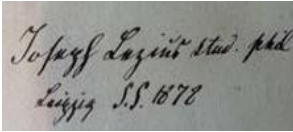 Joseph Lezius stud. phil
Leipzig S.S. 1878